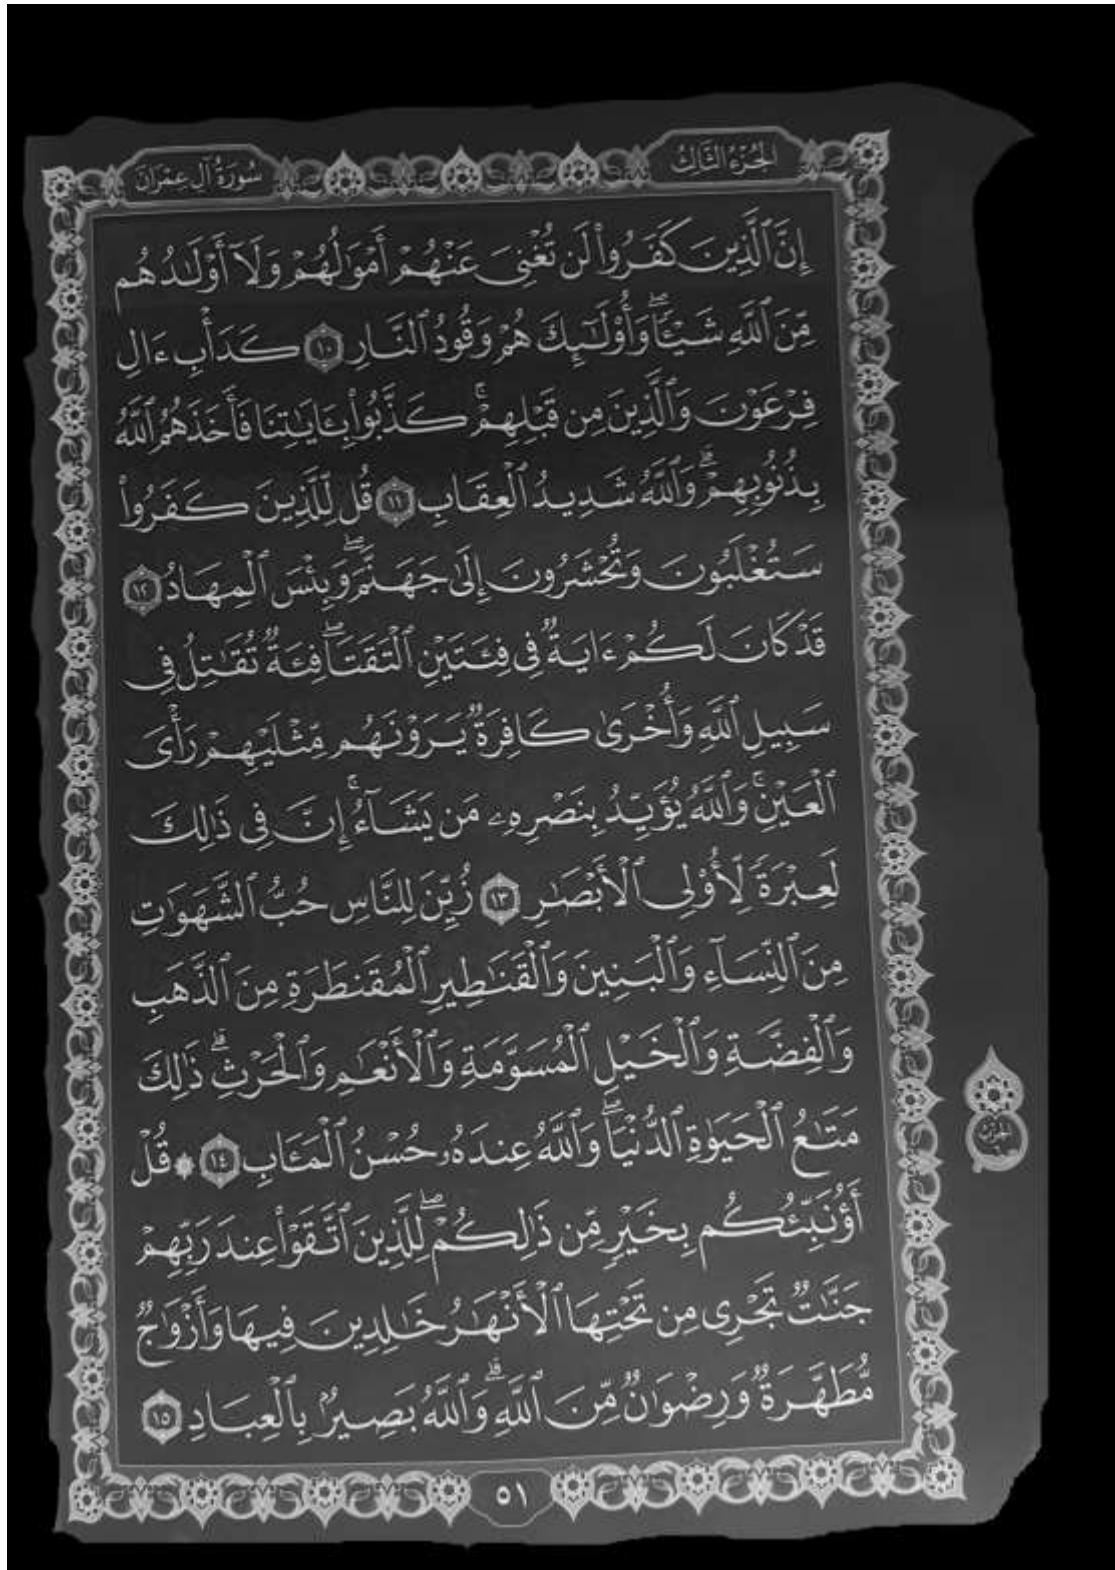 الجُزْءُ الثَّالِثُ
سُورَةُ آلِ عِمْرَانَ
إِنَّ ٱلَّذِينَ كَفَرُوا۟ لَن تُغْنِىَ عَنْهُمْ أَمْوَٰلُهُمْ وَلَآ أَوْلَـٰدُهُم
مِّنَ ٱللَّهِ شَيْـًٔا ۖ وَأُو۟لَـٰٓئِكَ هُمْ وَقُودُ ٱلنَّارِ ١٠ كَدَأْبِ ءَالِ
فِرْعَوْنَ وَٱلَّذِينَ مِن قَبْلِهِمْ ۚ كَذَّبُوا۟ بِـَٔايَـٰتِنَا فَأَخَذَهُمُ ٱللَّهُ
بِذُنُوبِهِمْ ۗ وَٱللَّهُ شَدِيدُ ٱلْعِقَابِ ١١ قُل لِّلَّذِينَ كَفَرُوا۟
سَتُغْلَبُونَ وَتُحْشَرُونَ إِلَىٰ جَهَنَّمَ ۖ وَبِئْسَ ٱلْمِهَادُ ١٢
قَدْ كَانَ لَكُمْ ءَايَةٌ فِى فِئَتَيْنِ ٱلْتَقَتَا ۖ فِئَةٌ تُقَـٰتِلُ فِى
سَبِيلِ ٱللَّهِ وَأُخْرَىٰ كَافِرَةٌ يَرَوْنَهُم مِّثْلَيْهِمْ رَأْىَ
ٱلْعَيْنِ ۚ وَٱللَّهُ يُؤَيِّدُ بِنَصْرِهِۦ مَن يَشَآءُ ۚ إِنَّ فِى ذَٰلِكَ
لَعِبْرَةً لِّأُو۟لِى ٱلْأَبْصَـٰرِ ١٣ زُيِّنَ لِلنَّاسِ حُبُّ ٱلشَّهَوَٰتِ
مِنَ ٱلنِّسَآءِ وَٱلْبَنِينَ وَٱلْقَنَـٰطِيرِ ٱلْمُقَنطَرَةِ مِنَ ٱلذَّهَبِ
وَٱلْفِضَّةِ وَٱلْخَيْلِ ٱلْمُسَوَّمَةِ وَٱلْأَنْعَـٰمِ وَٱلْحَرْثِ ۗ ذَٰلِكَ
مَتَـٰعُ ٱلْحَيَوٰةِ ٱلدُّنْيَا ۖ وَٱللَّهُ عِندَهُۥ حُسْنُ ٱلْمَـَٔابِ ١٤ ۞ قُلْ
أَؤُنَبِّئُكُم بِخَيْرٍ مِّن ذَٰلِكُمْ ۖ لِلَّذِينَ ٱتَّقَوْا۟ عِندَ رَبِّهِمْ
جَنَّـٰتٌ تَجْرِى مِن تَحْتِهَا ٱلْأَنْهَـٰرُ خَـٰلِدِينَ فِيهَا وَأَزْوَٰجٌ
مُّطَهَّرَةٌ وَرِضْوَٰنٌ مِّنَ ٱللَّهِ ۗ وَٱللَّهُ بَصِيرٌۢ بِٱلْعِبَادِ ١٥
٥١